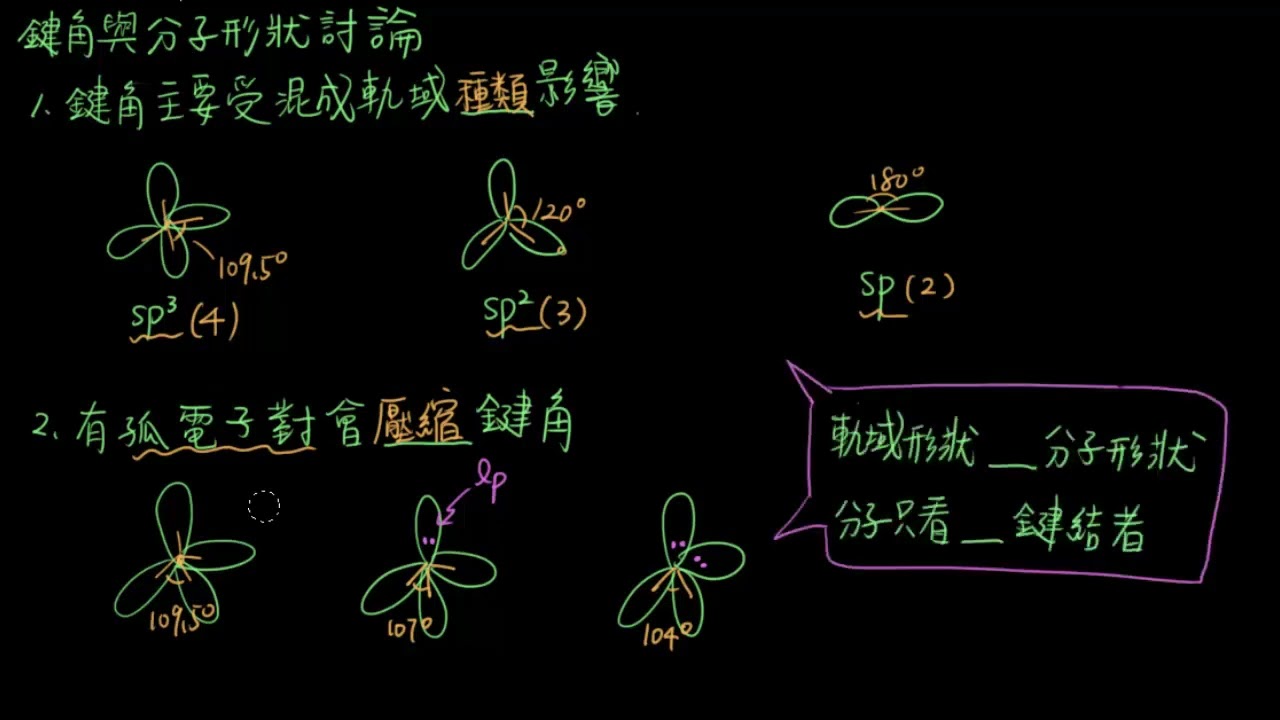 鍵角與分子形狀討論
1. 鍵角主要受混成軌域種類影響.
109.5°
120°
180°
sp³ (4)
sp² (3)
sp (2)
2. 有孤電子對會壓縮鍵角
lp
109.5°
107°
104°
軌域形狀 __ 分子形狀
分子只看 __ 鍵結者